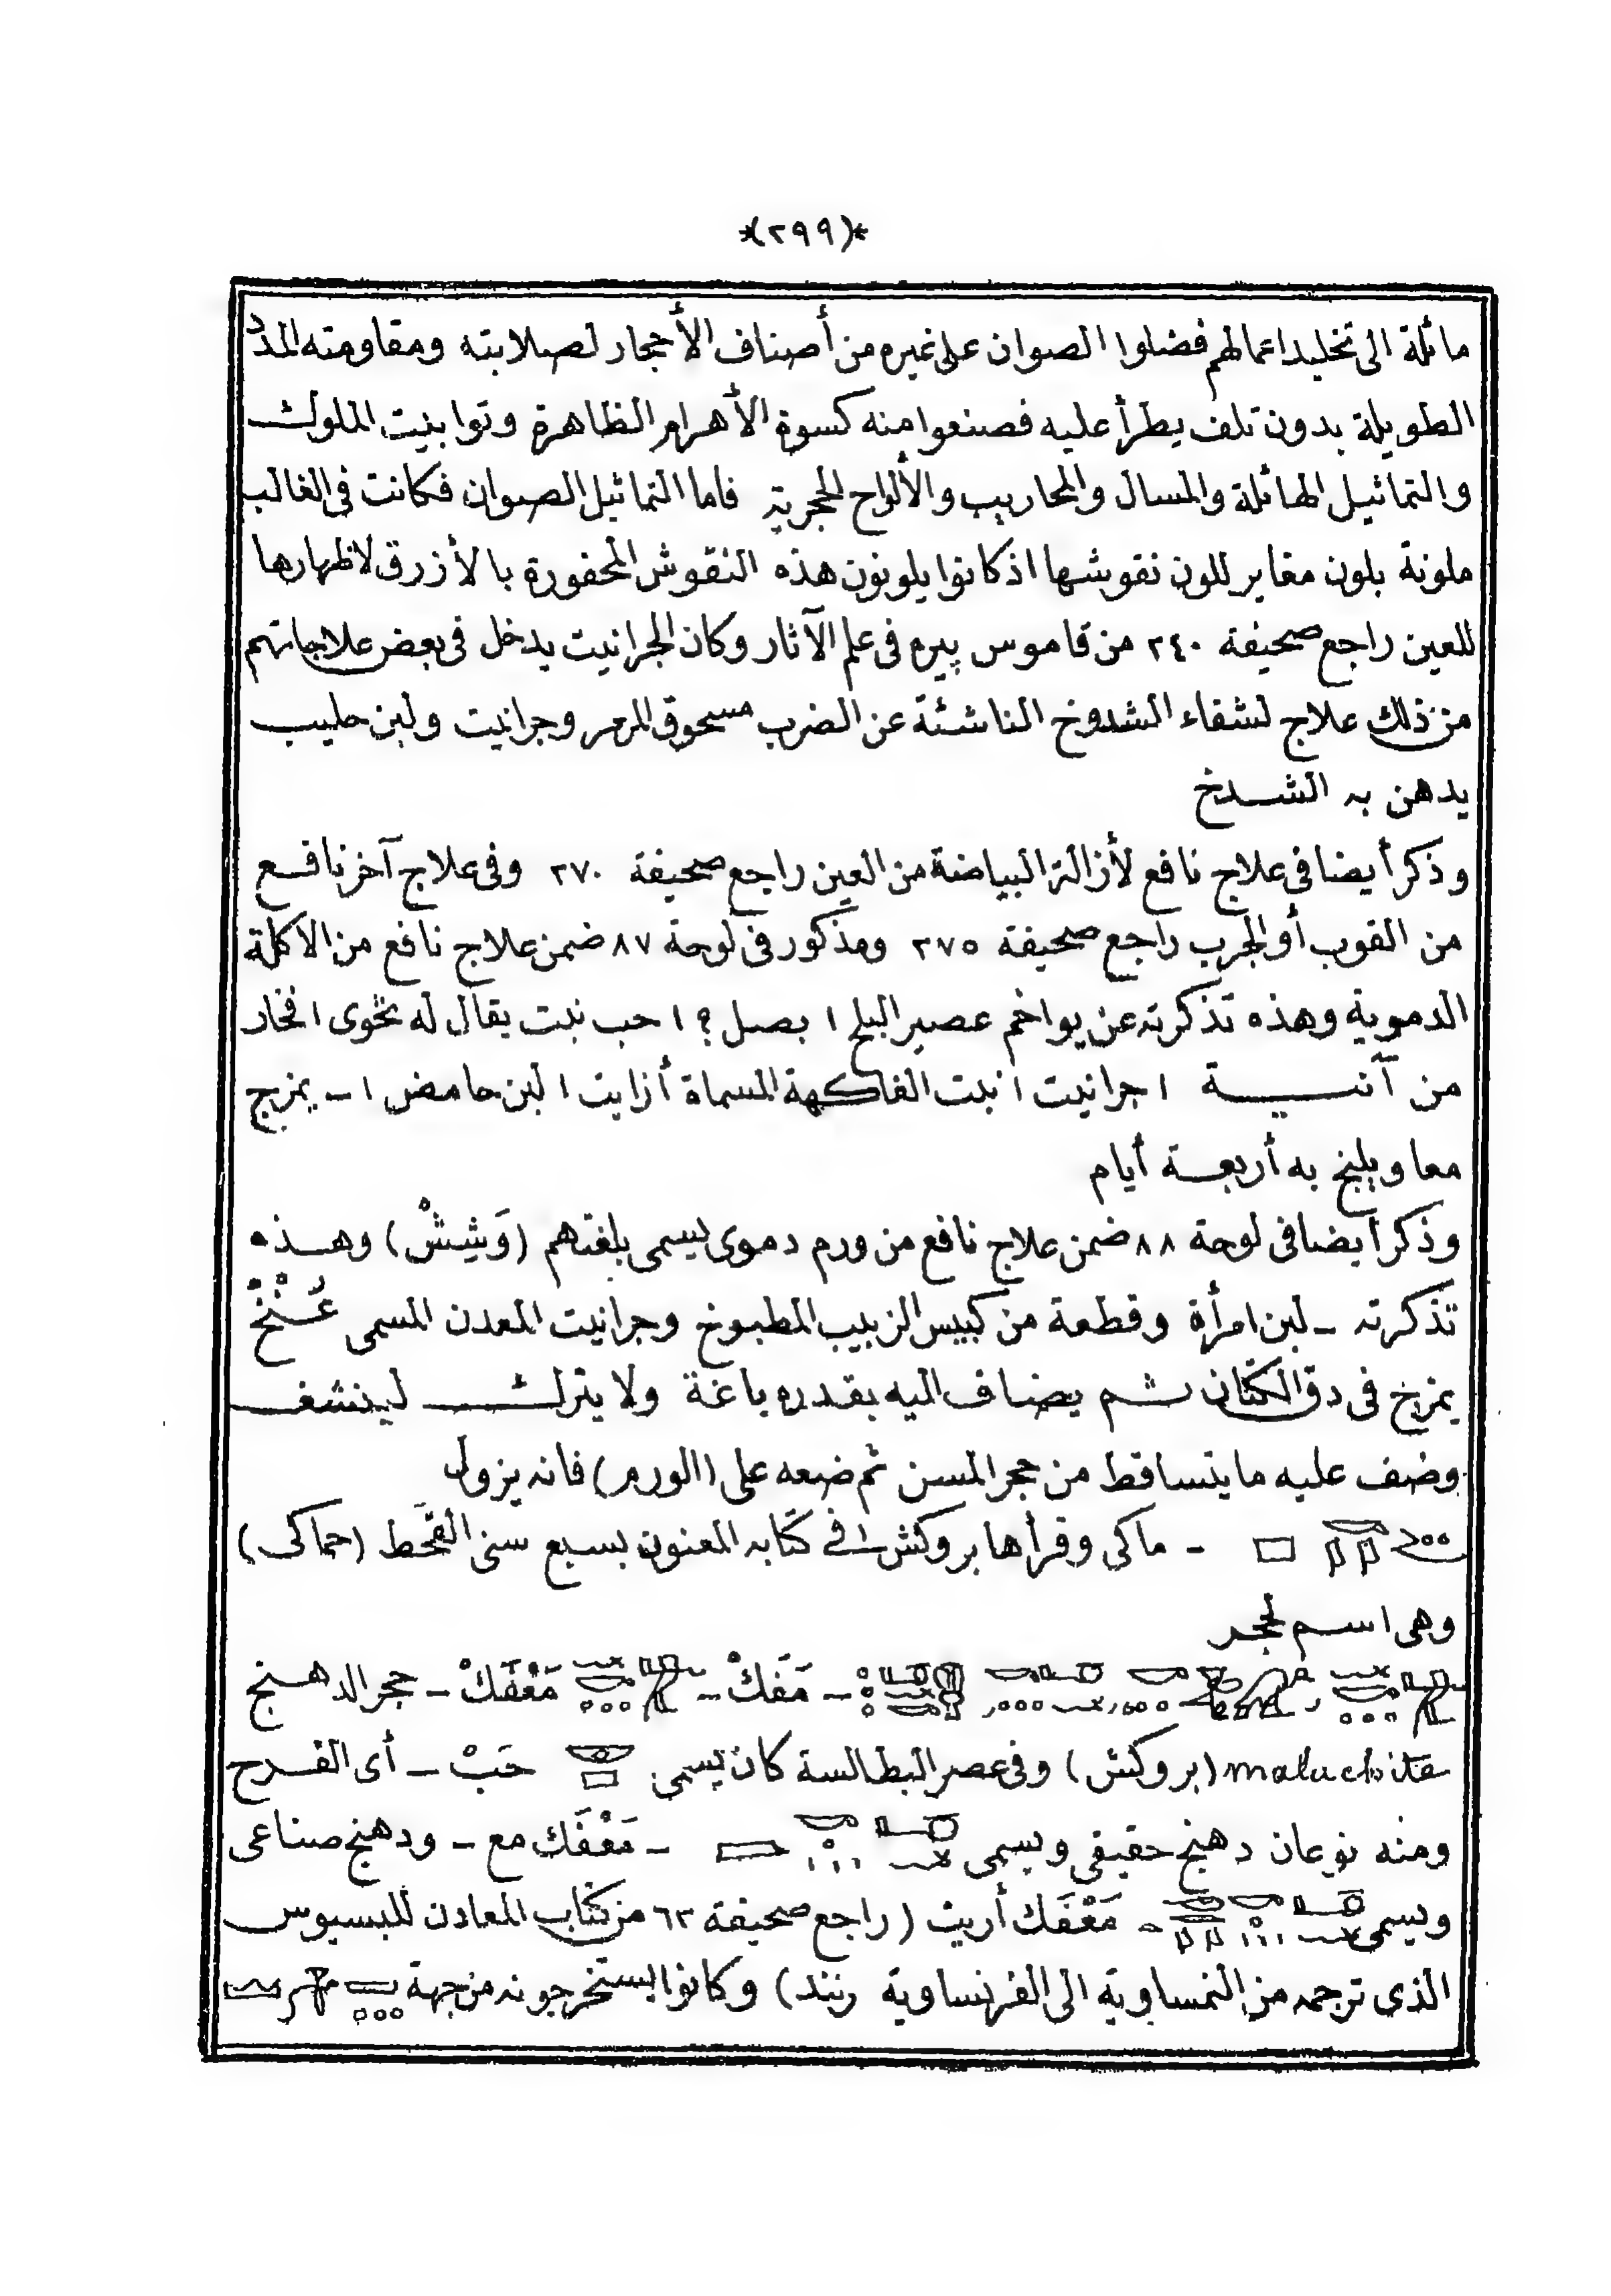 *(٢٩٩)*
مائلة الى تخليد اعمالهم فضلوا الصوان على غيره من أصناف الأحجار لصلابته ومقاومته المدد
الطويلة بدون تلف يطرأ عليه فصنعوا منه كسوة الأهرام الظاهرة وتوابيت الملوك
والتماثيل الهائلة والمسال والمحاريب والألواح الحجرية فاما التماثيل الصوان فكانت فى الغالب
ملونة بلون مغاير للون نقوشها اذ كانوا يلونون هذه النقوش المحفورة بالأزرق لاظهارها
للعين راجع صحيفة ٢٤٠ من قاموس پيره فى علم الآثار وكان الجرانيت يدخل فى بعض علاجاتهم
من ذلك علاج لشفاء الشدوخ الناشئة عن الضرب مسحوق المرمر وجرانيت ولبن حليب
يدهن به الشدخ
وذكر أيضا فى علاج نافع لأزالة البياضة من العين راجع صحيفة ٢٧٠ وفى علاج آخر نافع
من القوب أو الجرب راجع صحيفة ٢٧٥ ومذكور فى لوحة ٨٧ ضمن علاج نافع من الاكلة
الدموية وهذه تذكرته عن يواخم عصير البلح ١ بصل ؟ ١ حب نبت يقال له نخوى ١ فخار
من آنية ١ جرانيت ١ نبت الفاكهة المسماة أزايت ١ لبن حامض ١ ـ يمزج
معا ويلبخ به أربعة أيام
وذكر أيضا فى لوحة ٨٨ ضمن علاج نافع من ورم دموى يسمى بلغتهم (وَشِشْ) وهذه
تذكرته ـ لبن امرأة وقطعة من كبيس الزبيب المطبوخ وجرانيت المعدن المسمى عُنْخْ
يمزج فى دق الكتان ثم يضاف اليه بقدره باغة ولا يترك لينشف
وضف عليه ما يتساقط من حجر المسن ثم ضعه على (الورم) فانه يزول
ـ ماكى وقرأها بروكش فى كتابه المعنون بسبع سنى القحط (حماكى)
وهى اسم لحجر
ـ مَفَكْ ـ مَعْفَكْ ـ حجر الدهنج
malachite (بروكش) وفى عصر البطالسة كان يسمى حَبْ ـ أى الفرح
ومنه نوعان دهنج حقيقى ويسمى ـ مَعْفَك مع ـ ودهنج صناعى
ويسمى ـ مَعْفَك أريت (راجع صحيفة ٦٢ من كتاب المعادن للبسيوس
الذى ترجمه من النمساوية الى الفرنساوية رنند) وكانوا يستخرجونه من جهة